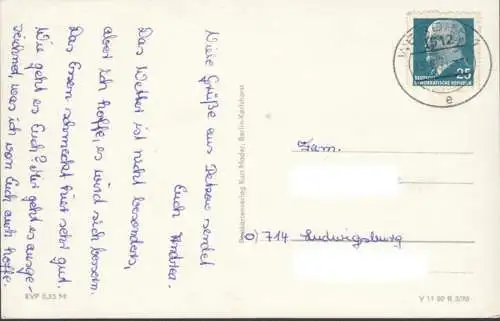 Viele Grüße aus Petzow sendet
Euch Andrea.
Das Wetter ist nicht besonders,
aber ich hoffe, es wird sich bessern.
Das Essen schmeckt hier sehr gut.
Wie geht es Euch? Mir geht es ausge-
zeichnet, was ich von Euch auch hoffe.
EVP 0,15 M
Postkartenverlag Kurt Mader, Berlin-Karlshorst
25
DEUTSCHE
DEMOKRATISCHE REPUBLIK
1512
e
Fam.
0) 714 Ludwigsburg
V 11 50 R 3/70